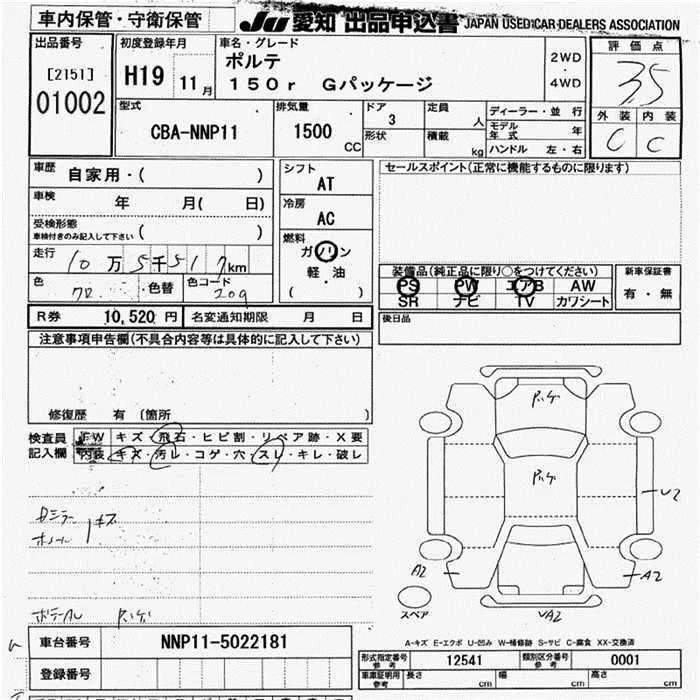 車内保管・守衛保管
JU 愛知 出品申込書 JAPAN USED CAR DEALERS ASSOCIATION
出品番号
[2151]
01002
初度登録年月
H19 11月
車名・グレード
ポルテ
150r Gパッケージ
2WD
・
4WD
評価点
3.5
外装 内装
C C
型式
CBA-NNP11
排気量
1500 CC
ドア
3
形状
定員
人
積載
kg
ディーラー・並行
モデル年式 年
ハンドル 左・右
車歴 自家用・( )
車検 年 月( 日)
受検形態
車検付きのみ記入して下さい ( )
走行 10万5千517km
色 クロ ・色替 色コード 209
シフト
AT
冷房
AC
燃料
ガソリン
軽・油
( )
セールスポイント(正常に機能するものに限ります)
装備品(純正品に限り○をつけてください)
PS PW エアB AW
SR ナビ TV カワシート
新車保証書
有・無
R券 10,520 円 名変通知期限 月 日
後日品
注意事項申告欄(不具合内容等は具体的に記入して下さい)
修復歴 有 (箇所
検査員
記入欄
FW キズ・飛石・ヒビ割・リペア跡・X要
内装 キズ・汚レ・コゲ・穴・スレ・キレ・破レ
キズ
U2
A2
A2
UA2
スペア
A-キズ E-エクボ U-凹み W-補修跡 S-サビ C-腐食 XX-交換済
車台番号 NNP11-5022181
登録番号
形式指定番号
参考
12541
類別区分番号
参考
0001
車庫証明用
参考
長さ cm 幅 cm 高さ cm